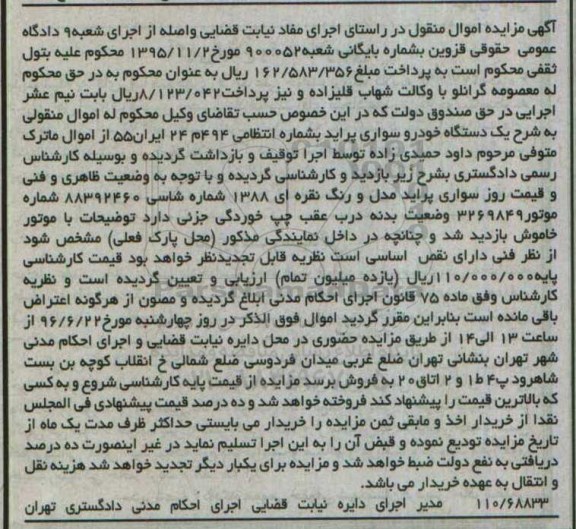 آگهی مزایده اموال منقول در راستای اجرای مفاد نیابت قضایی واصله از اجرای شعبه۹ دادگاه
عمومی حقوقی قزوین بشماره بایگانی شعبه۹۰۰۰۵۲ مورخ۱۳۹۵/۱۱/۲ محکوم علیه بتول
ثقفی محکوم است به پرداخت مبلغ۱۶۲/۵۸۳/۳۵۶ ریال به عنوان محکوم به در حق محکوم
له معصومه گرانلو با وکالت شهاب قلیزاده و نیز پرداخت۸/۱۲۳/۰۴۲ریال بابت نیم عشر
اجرایی در حق صندوق دولت که در این خصوص حسب تقاضای وکیل محکوم له اموال منقولی
به شرح یک دستگاه خودرو سواری پراید بشماره انتظامی ۴۹۴م ۲۴ ایران۵۵ از اموال ماترک
متوفی مرحوم داود حمیدی زاده توسط اجرا توقیف و بازداشت گردیده و بوسیله کارشناس
رسمی دادگستری بشرح زیر بازدید و کارشناسی گردیده و با توجه به وضعیت ظاهری و فنی
و قیمت روز سواری پراید مدل و رنگ نقره ای ۱۳۸۸ شماره شاسی ۸۸۳۹۲۴۶۰ شماره
موتور۳۲۶۹۸۴۹ وضعیت بدنه درب عقب چپ خوردگی جزئی دارد توضیحات با موتور
خاموش بازدید شد و چنانچه در داخل نمایندگی مذکور (محل پارک فعلی) مشخص شود
از نظر فنی دارای نقص اساسی است نظریه قابل تجدیدنظر خواهد بود قیمت کارشناسی
پایه۱۱۰/۰۰۰/۰۰۰ریال (یازده میلیون تمام) ارزیابی و تعیین گردیده است و نظریه
کارشناس وفق ماده ۷۵ قانون اجرای احکام مدنی ابلاغ گردیده و مصون از هرگونه اعتراض
باقی مانده است بنابراین مقرر گردید اموال فوق الذکر در روز چهارشنبه مورخ۹۶/۶/۲۲ از
ساعت ۱۳ الی۱۴ از طریق مزایده حضوری در محل دایره نیابت قضایی و اجرای احکام مدنی
شهر تهران بنشانی تهران ضلع غربی میدان فردوسی ضلع شمالی خ انقلاب کوچه بن بست
شاهرود پ۴ ط۱ و ۲ اتاق۲۰ به فروش برسد مزایده از قیمت پایه کارشناسی شروع و به کسی
که بالاترین قیمت را پیشنهاد کند فروخته خواهد شد و ده درصد قیمت پیشنهادی فی المجلس
نقدا از خریدار اخذ و مابقی ثمن مزایده را خریدار می بایستی حداکثر ظرف مدت یک ماه از
تاریخ مزایده تودیع نموده و قبض آن را به این اجرا تسلیم نماید در غیر اینصورت ده درصد
دریافتی به نفع دولت ضبط خواهد شد و مزایده برای یکبار دیگر تجدید خواهد شد هزینه نقل
و انتقال به عهده خریدار می باشد.
۱۱۰/۶۸۸۳۳ مدیر اجرای دایره نیابت قضایی اجرای احکام مدنی دادگستری تهران